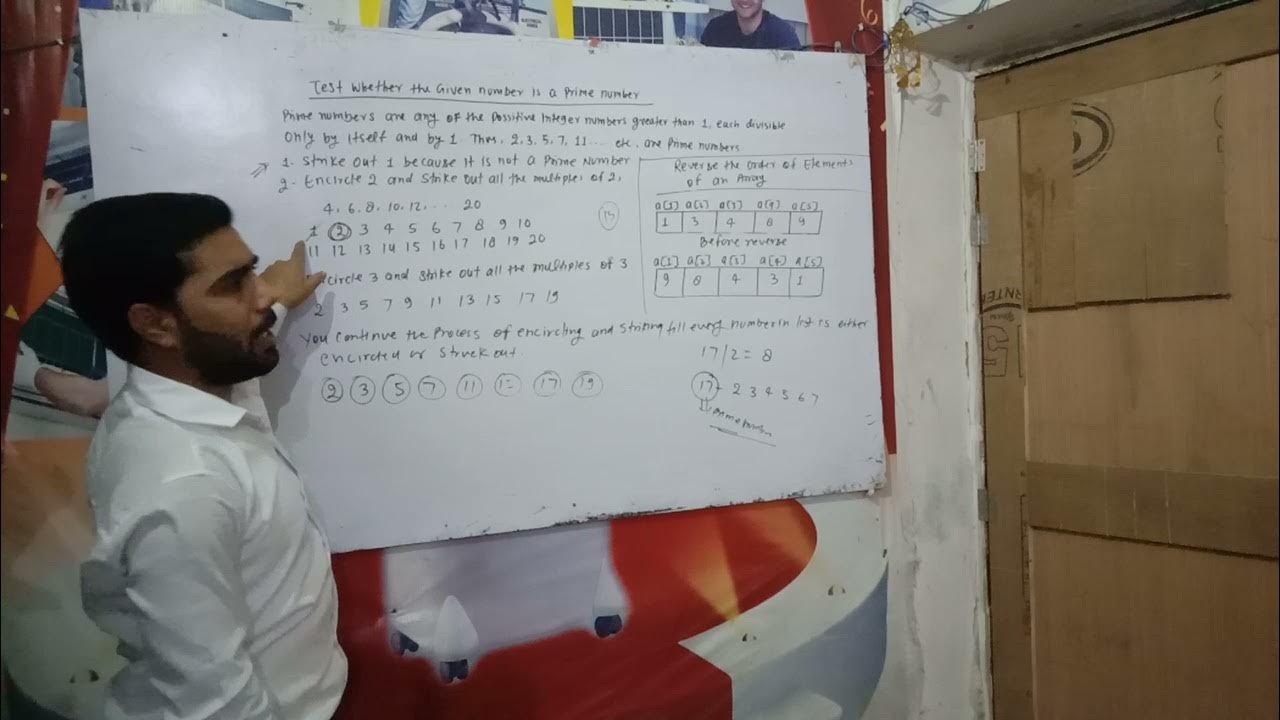 Test Whether the Given number is a Prime number
Prime numbers are any of the Possitive Integer numbers greater than 1, each divisible
Only by itself and by 1 Thus, 2, 3, 5, 7, 11... etc. are Prime numbers
1. Strike out 1 because it is not a Prime Number
2. Encircle 2 and Strike out all the multiples of 2,
4, 6, 8, 10, 12, ... 20
1 2 3 4 5 6 7 8 9 10
11 12 13 14 15 16 17 18 19 20
circle 3 and strike out all the multiples of 3
2 3 5 7 9 11 13 15 17 19
You continue the Process of encircling and striking till every number in list is either
encircled or Struck out.
2 3 5 7 11 17 19
Reverse the order of Elements
of an Array
a[1] a[2] a[3] a[4] a[5]
1 3 4 8 9
Before reverse
a[1] a[2] a[3] a[4] a[5]
9 8 4 3 1
17/2 = 8
17 - 2 3 4 5 6 7
Prime number